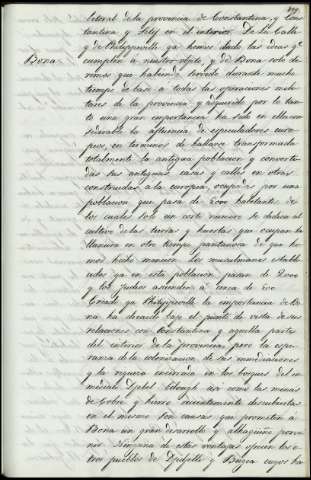 litoral de la provincia de Constantina, y Cons
tantina y Setif en el interior. De la Calle
y de Philippeville ya hemos dado las ideas qe
Bona cumplen a nuestro objeto, y de Bona solo di
remos que habiendo servido durante mucho
tiempo de base a todas las operaciones mili
tares de la provincia y adquirido por lo tan
to una gran importancia ha sido en ella con
siderable la afluencia de especuladores euro
peos, en terminos de hallarse transformada
totalmente la antigua poblacion y converti
das sus antiguas casas y calles en otras
construidas a la europea, ocupadas por una
poblacion que pasa de habitantes de
los cuales solo un corto numero se dedica al
cultivo de las tierras y huertas que ocupan la
llanura en otro tiempo pantanosa de que he
mos hecho mencion. Los musulmanes estable
cidos ya en esta poblacion pasan de 2000
y los judios ascienden a cerca de 600
Creada ya Philippeville la importancia de Bo
na ha decaido bajo el punto de vista de sus
relaciones con Constantina y aquella parte
del interior de la Provincia pero la espe
ranza de la colonizacion de sus inmediaciones
y la riqueza encerrada en los bosques del in
mediato Djebel Edough asi como las minas
de Cobre y hierro recientemente descubiertas
en el mismo son causas que prometen á
Bona un gran desarrollo y alhagüeño porve
nir. Ninguna de estas ventajas ofrecen los o
tros pueblos de Djidjelli y Bugia cuyos ha